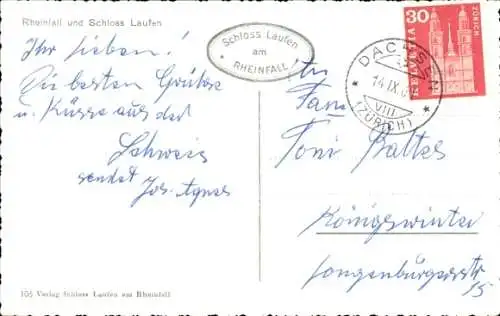 Rheinfall und Schloss Laufen
Ihr Lieben!
Die besten Grüße
u. Küsse aus der
Schweiz
sendet
Jos. Agnes
Schloss Laufen
am
RHEINFALL
30
HELVETIA
ZÜRICH
DACHSEN
14.IX.6
VIII
(ZÜRICH)
Fam
Toni Baltes
Königswinter
Longenburgerstr
15
105 Verlag Schloss Laufen am Rheinfall